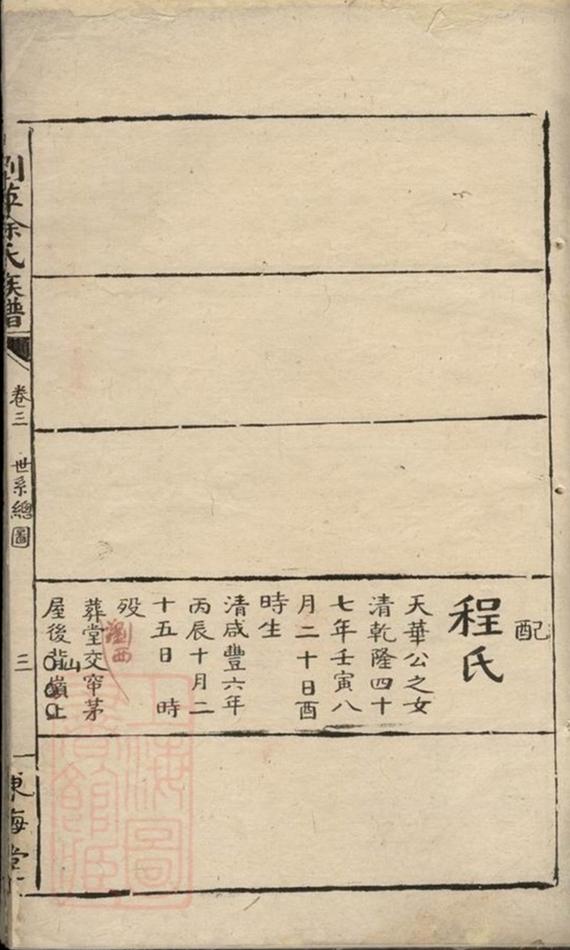 配
程氏
天華公之女
清乾隆四十
七年壬寅八
月二十日酉
時生
清咸豐六年
丙辰十月二
十五日 時
殁
瀏西
葬堂交窜茅
屋後背嶺上
山
徐氏族譜
卷三 世系總圖
三
東海堂